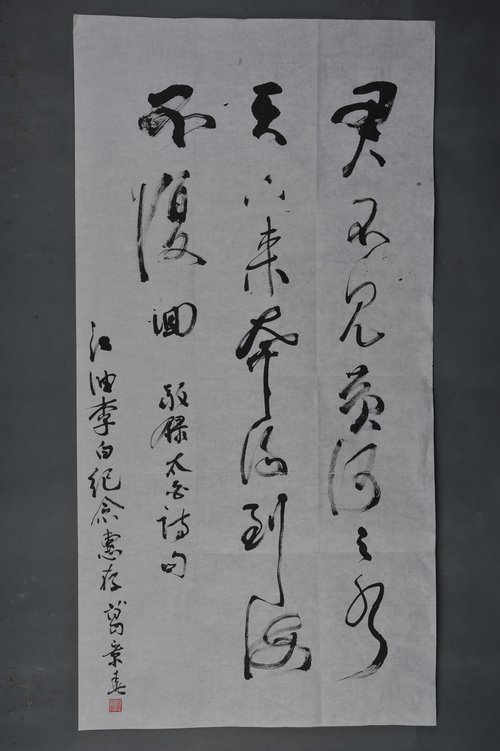 君不見黄河之水
天上来奔流到海
不復回 敬録太白詩句
江油李白紀念惠存 葛景春